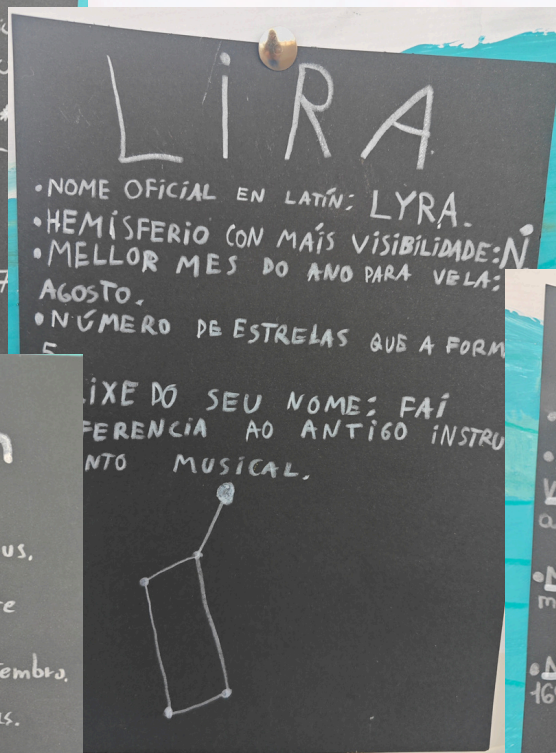 LIRA
• NOME OFICIAL EN LATÍN: LYRA.
• HEMISFERIO CON MAÍS VISIBILIDADE: N
• MELLOR MES DO ANO PARA VELA:
AGOSTO.
• NÚMERO DE ESTRELAS QUE A FORM
5
IXE DO SEU NOME: FAI
FERENCIA AO ANTIGO INSTRU
NTO MUSICAL.
us.
embro.
169